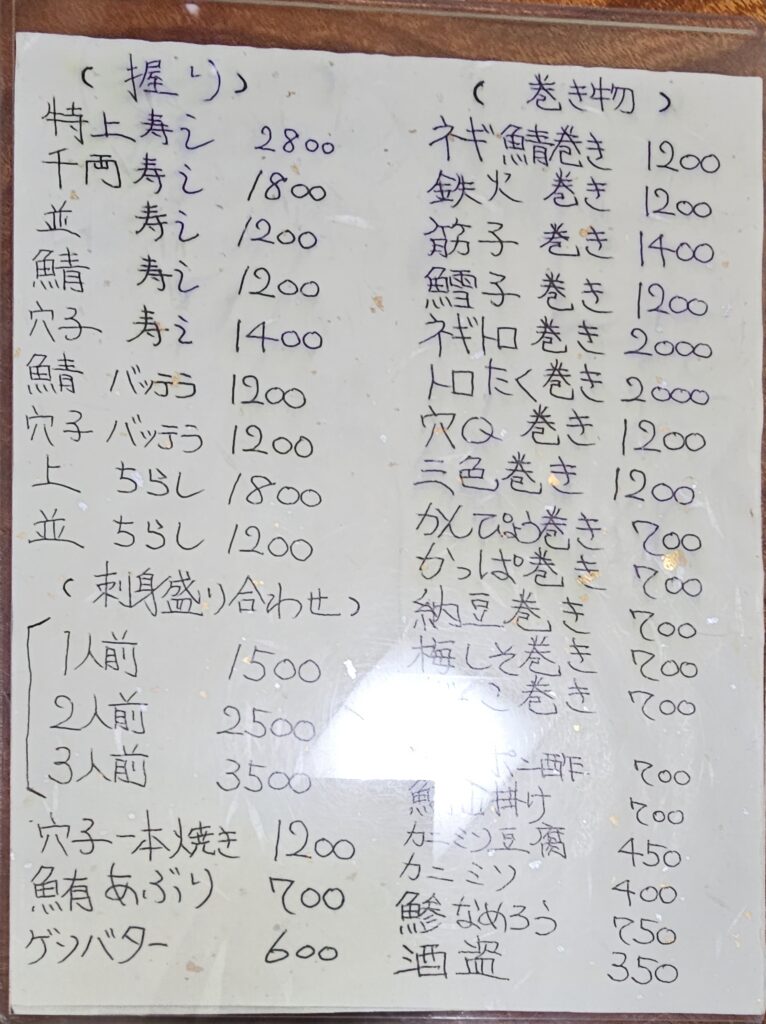 (握り)
特上寿し 2800
千両寿し 1800
並 寿し 1200
鯖 寿し 1200
穴子 寿し 1400
鯖 バッテラ 1200
穴子 バッテラ 1200
上 ちらし 1800
並 ちらし 1200
(刺身盛り合わせ)
1人前 1500
2人前 2500
3人前 3500
穴子一本焼き 1200
鮪あぶり 700
ゲソバター 600
(巻き物)
ネギ鯖巻き 1200
鉄火 巻き 1200
筋子 巻き 1400
鱈子 巻き 1200
ネギトロ 巻き 2000
トロたく巻き 2000
穴Q 巻き 1200
三色巻き 1200
かんぴょう巻き 700
かっぱ巻き 700
納豆巻き 700
梅しそ巻き 700
巻き 700
ポン酢 700
掛け 700
カニミソ豆腐 450
カニミソ 400
鯵なめろう 750
酒盗 350